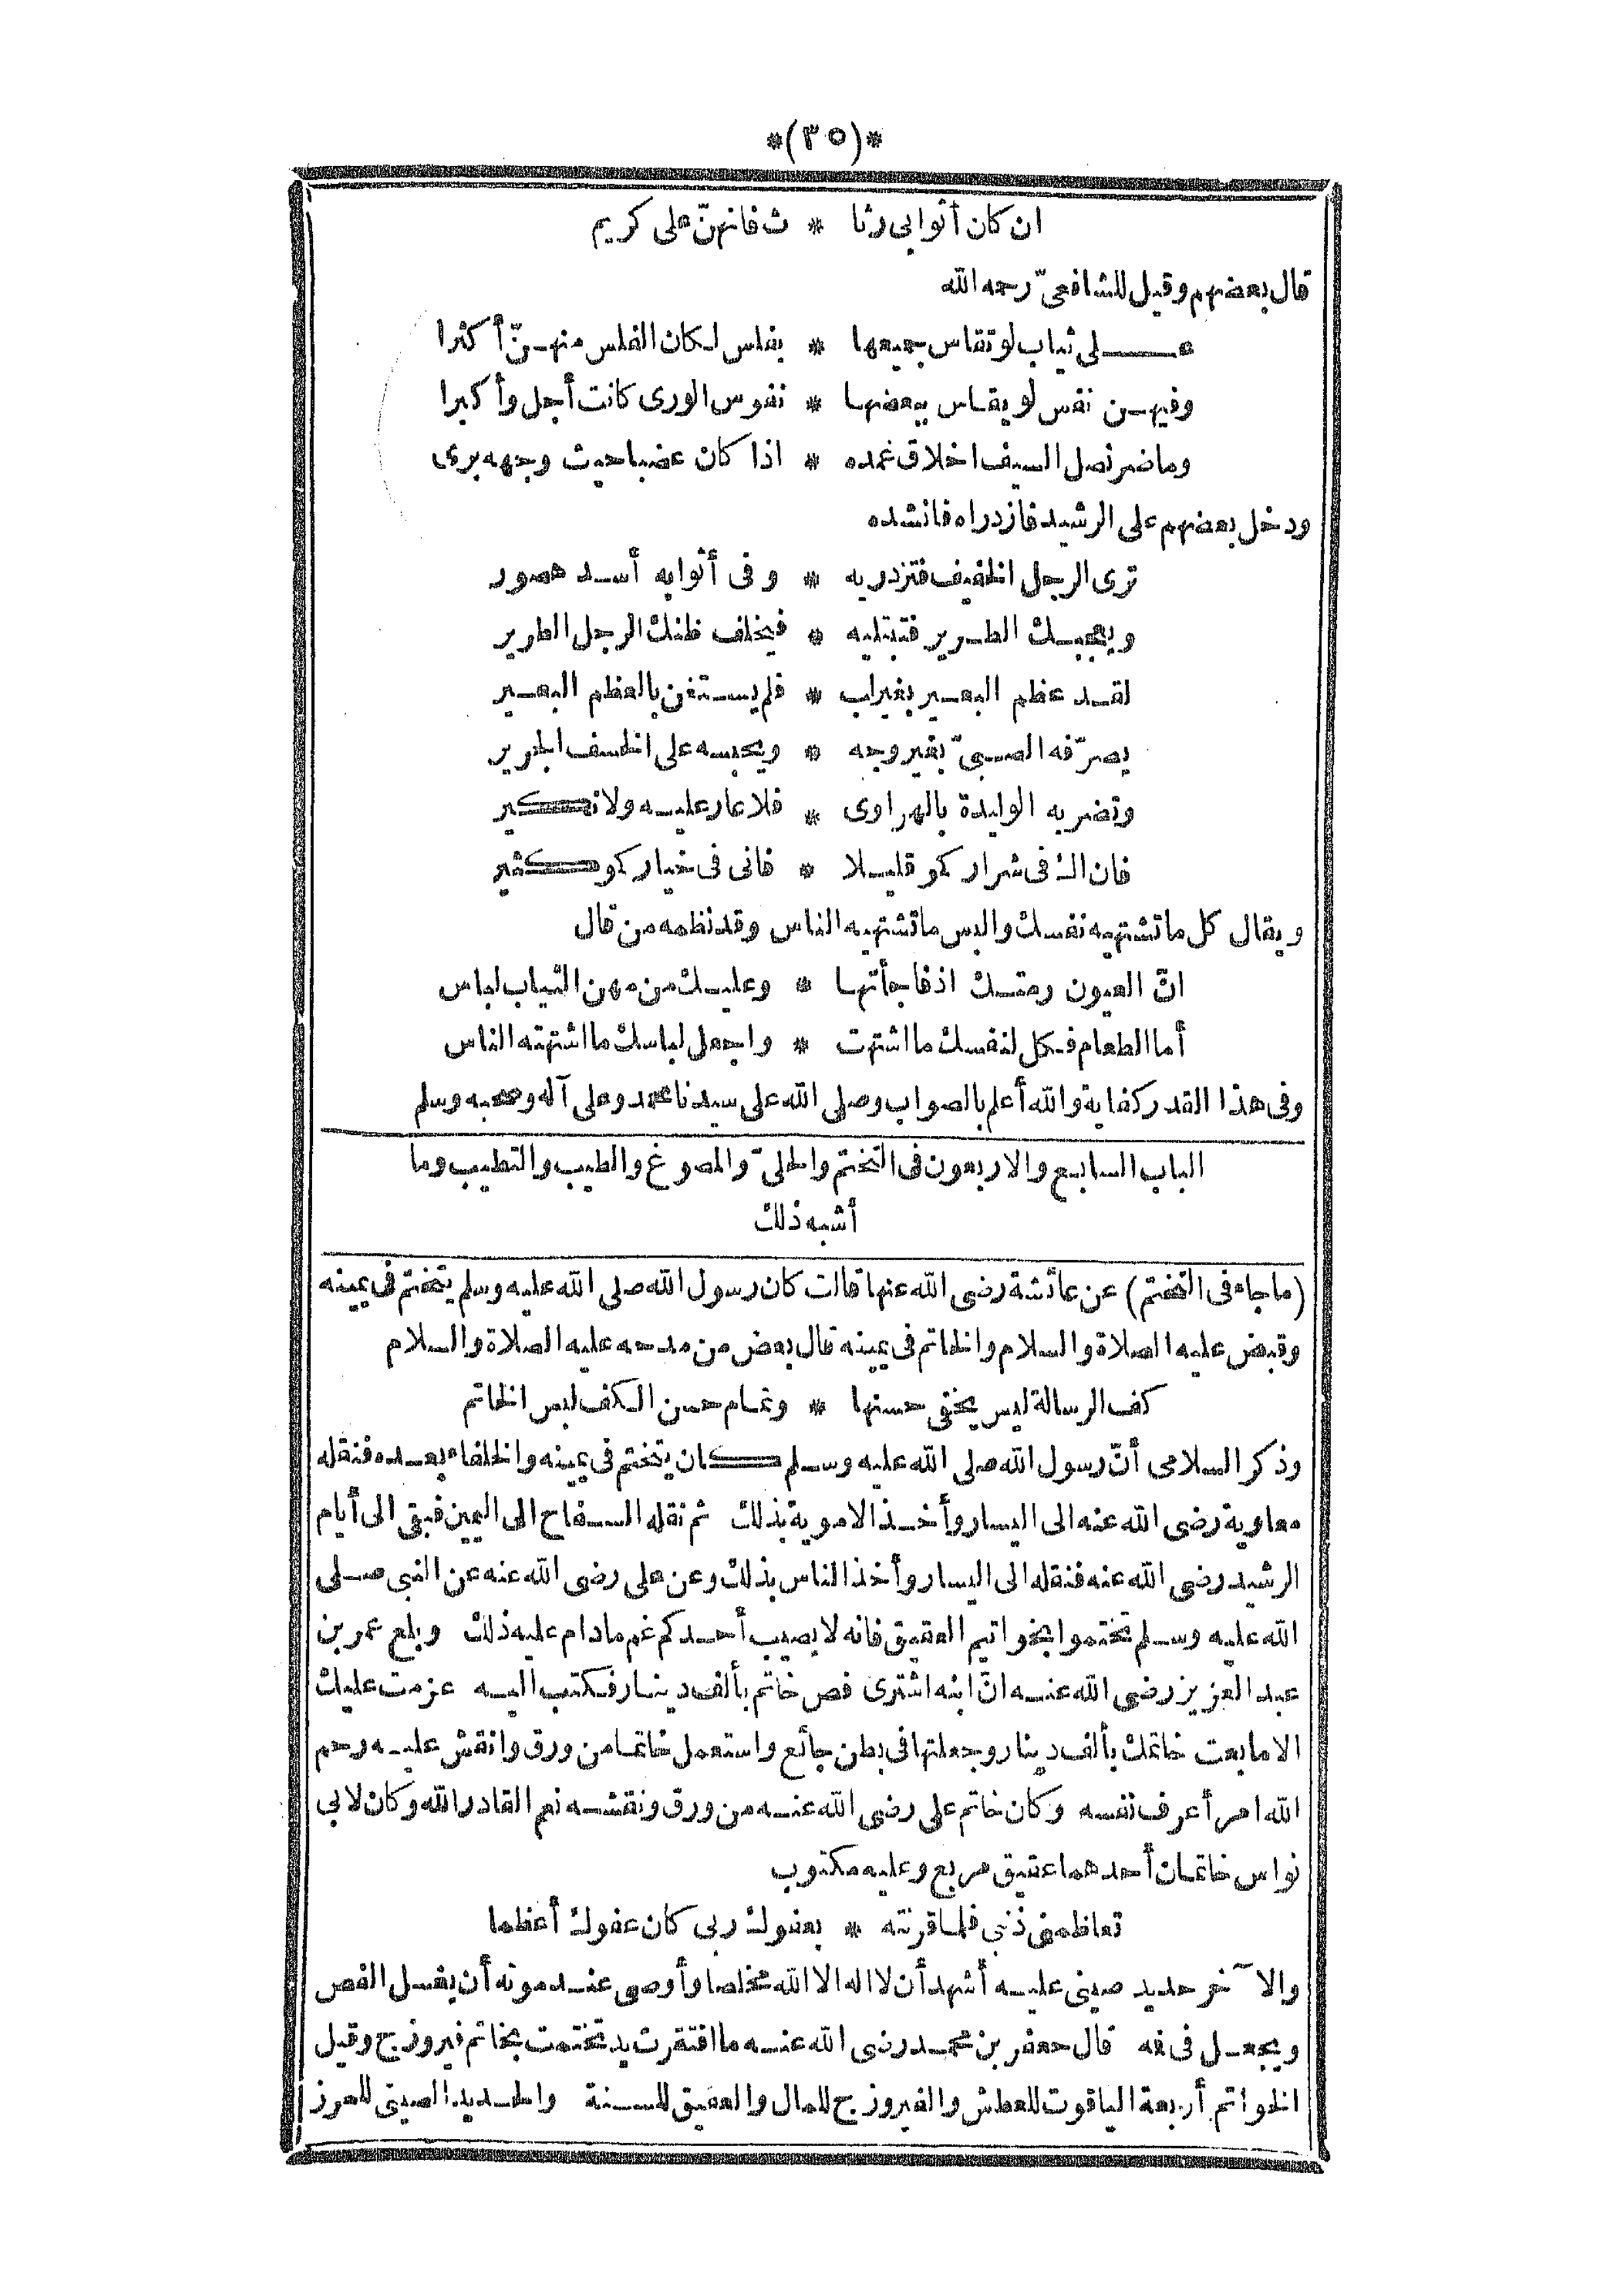 *(٣٥)*
ان كان أثوابى رثا * ث فانهنّ على كريم
قال بعضهم وقيل للشافعىّ رحمه الله
عــلى ثياب لو تقاس جميعها * بفلس لكان الفلس منهنّ أكثرا
وفيهن نفس لو يقاس ببعضها * نفوس الورى كانت أجل وأكبرا
وما ضر نصل السيف اخلاق غمده * اذا كان عضبا حيث وجهه برى
ودخل بعضهم على الرشيد فازدراه فانشده
ترى الرجل الخفيف فتزدريه * وفى أثوابه أسد هصور
ويعجبك الطرير فتبتليه * فيخلف ظنك الرجل الطرير
لقد عظم البعير بغير لب * فلم يستغن بالعظم البعير
يصرّفه الصبىّ بغير وجه * ويحبسه على الخسف الجرير
وتضربه الوليدة بالهراوى * فلا عار عليه ولا نكير
فان الـك فى شراركمو قليلا * فانى فى خياركمو كثير
ويقال كل ما تشتهيه نفسك والبس ما تشتهيه الناس وقد نظمه من قال
انّ العيون رمتك اذ فاجأتها * وعليك من مهن الثياب لباس
أما الطعام فكل لنفسك ما اشتهت * واجعل لباسك ما اشتهته الناس
وفى هذا القدر كفاية والله أعلم بالصواب وصلى الله على سيدنا محمد وعلى آله وصحبه وسلم
الباب السابع والاربعون فى التختم والحلىّ والمصوغ والطيب والتطيب وما
أشبه ذلك
(ما جاء فى التختم) عن عائشة رضى الله عنها قالت كان رسول الله صلى الله عليه وسلم يتختم فى يمينه
وقبض عليه الصلاة والسلام والخاتم فى يمينه قال بعض من مدحه عليه الصلاة والسلام
كف الرسالة ليس يخفى حسنها * وتمام حسن الكف لبس الخاتم
وذكر السلامى أنّ رسول الله صلى الله عليه وسلم كان يتختم فى يمينه والخلفاء بعده فنقله
معاوية رضى الله عنه الى اليسار وأخذ الاموية بذلك ثم نقله السفاح الى اليمين فبقى الى أيام
الرشيد رضى الله عنه فنقله الى اليسار وأخذ الناس بذلك وعن على رضى الله عنه عن النبى صلى
الله عليه وسلم تختموا بخواتيم العقيق فانه لا يصيب أحدكم غم ما دام عليه ذلك وبلغ عمر بن
عبد العزيز رضى الله عنه انّ ابنه اشترى فص خاتم بألف دينار فكتب اليه عزمت عليك
الا ما بعت خاتمك بألف دينار وجعلتها فى بطن جائع واستعمل خاتما من ورق وانقش عليه رحم
الله امرأ عرف نفسه وكان خاتم على رضى الله عنه من ورق ونقشه نعم القادر الله وكان لابى
نواس خاتمان أحدهما عقيق مربع وعليه مكتوب
تعاظمنى ذنبى فلما قرنته * بعفوك ربى كان عفوك أعظما
والآخر حديد صينى عليه أشهد أن لا اله الا الله مخلصا وأوصى عند موته أن يغسل الفص
ويجعل فى فمه قال جعفر بن محمد رضى الله عنه ما افتقرت يد تختمت بخاتم فيروزج وقيل
الخواتم أربعة الياقوت للعطش والفيروزج للمال والعقيق للسنة والحديد الصينى للحرز